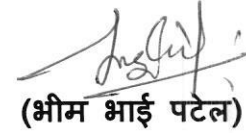 (भीम भाई पटेल)